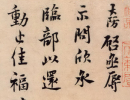 啓 辱
示問欣承
臨部以還
動止佳福